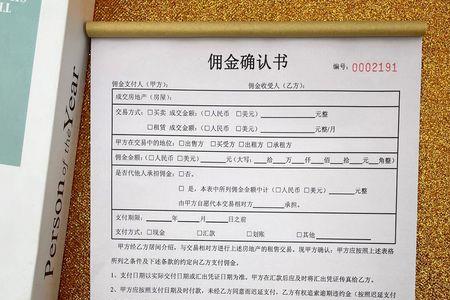 佣金确认书
编号:0002191
佣金支付人(甲方): 佣金收受人(乙方):
成交房地产(房屋):
交易方式:□买卖 成交金额:(□人民币 □美元)________元整
□租赁 成交金额:(□人民币 □美元)________元整/月
甲方在交易中的地位:□出售方 □买受方 □出租方 □承租方
佣金金额:(□人民币 □美元)____元(大写:__拾__万__仟__佰__拾__元__角整)
是否代他人承担佣金:□否。
□是,本表中所列佣金金额中计(□人民币 □美元)____元整
由甲方自愿代本交易相对方________承担。
支付期限:____年____月____日之前
支付方式:□现金 □汇款 □划账 □其他________
甲方经乙方居间介绍,与交易相对方进行上述房地产的租售交易,现甲方确认:甲方应按照上述表格
所列之条件及下述条款的约定向乙方支付佣金。
1、支付日期以实际交付日期或汇出凭证日期为准,甲方在汇款后应及时将汇出凭证传真给乙方。
2、甲方应按照支付日期及时付款,未经乙方同意而迟延支付,乙方有权追索逾期违约金(按照迟延
Person of the Year